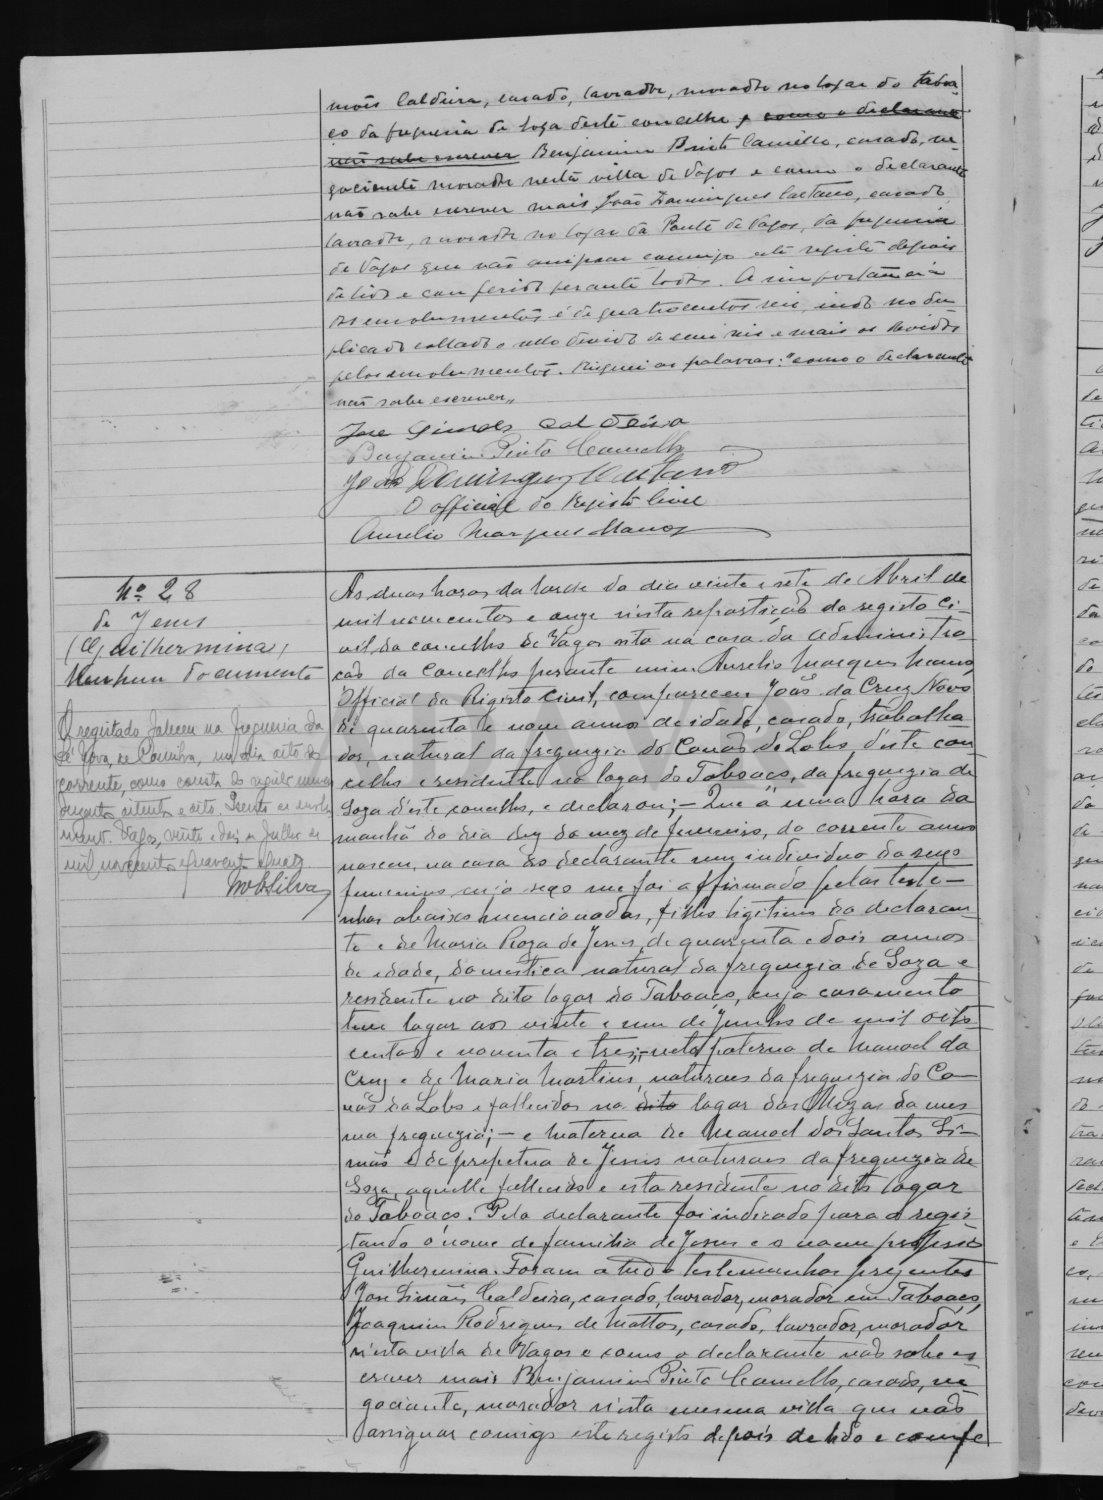 mões Caldeira, casado, lavrador, morador no logar do Taboa-
ço da freguesia de Soza deste concelho e como o declarante
não sabe escrever Benjamim Pinto Camello, casado, ne-
gociante morador nesta villa de Vagos e como o declarante
não sabe escrever mais João Domingues Caetano, casado
lavrador, morador no logar da Ponte de Vagos, da freguesia
de Vagos que vão assignar comigo este registo depois
de lido e conferido perante todos. A importancia
dos emolumentos é de quatrocentos reis, indo no du-
plicado collado o sello devido de cem reis e mais os devidos
pelos emolumentos. Risquei as palavras: "como o declarante
não sabe escrever"
José Simões Caldeira
Benjamim Pinto Camello
João Domingues Caetano
O official do Registo Civil
Aurelio Marques Mano
Nº 28
de Jesus
(Guilhermina)
Nenhum documento
O registado faleceu na freguesia da
Sé Nova, de Coimbra, no dia oito do
corrente, como consta do registo numero
oitenta e oito. Isento de emolu-
mentos. Vagos, vinte e dois de Julho de
mil novecentos e quarenta e quatro.
MobSilva
As duas horas da tarde do dia vinte e sete de Abril de
mil novecentos e onze nesta repartição do registo Ci-
vil do concelho de Vagos sita na casa da administra-
ção do Concelho perante mim Aurelio Marques Mano,
Official do Rigisto Civil, compareceu João da Cruz Novo
de quarenta e nove annos de idade, casado, trabalha
dor, natural da freguezia do Covão do Lobo, d'este con
celho e residente no logar do Taboaço, da freguezia de
Soza d'este concelho, e declarou; – Que á uma hora da
manhã do dia dez do mez de fevereiro, do corrente anno
nasceu, na casa do declarante um individuo do sexo
femenino cujo sexo me foi affirmado pelas teste-
nhas abaixo mencionadas, filho ligitimo do declaran-
te e de Maria Roza de Jesus, de quarenta e dois annos
de edade, domestica natural da freguezia de Soza e
residente no dito logar do Taboaço, cujo casamento
teve logar aos vinte e um de Junho de mil oito
centos e noventa e tres;–neto paterno de Manoel da
Cruz e de Maria Martins, naturaes da freguezia do Co-
vão do Lobo e fallecidos no dito logar das Mezas da mes
ma freguezia; – e materno de Manoel dos Santos Si-
mão e de prepetua de Jesus naturaes da freguezia de
Soza, aquelle fallecido e esta residente no dito logar
do Taboaço. Pelo declarante foi indicado para o regis-
tando o nome de familia de Jesus e o nome proprio
Guilhermina. Foram a tudo testemunhas prezentes
José Simões Caldeira, casado, lavrador, morador em Taboaço,
Joaquim Rodrigues de Mattos, casado, lavrador, morador
n'esta villa de Vagos e como o declarante não sabe es
crever mais Benjamim Pinto Camello, casado, ne
gociante, morador n'esta mesma villa que vão
assignar comigo este registo depois de lido e confe